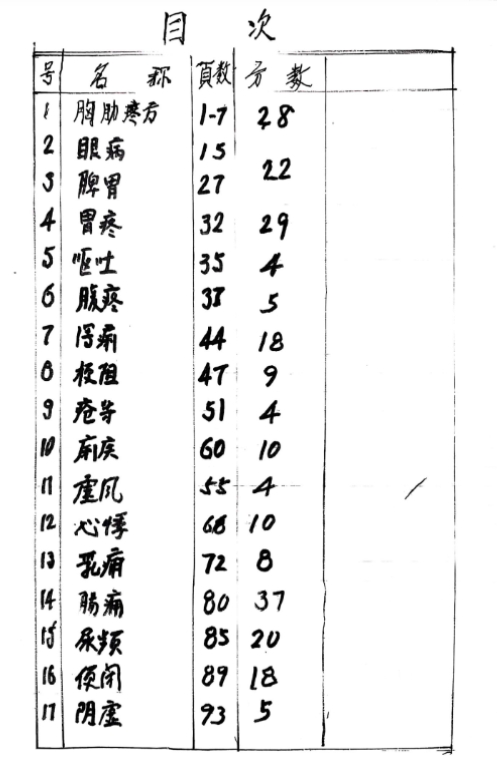 目 次
号 名 称 頁数 方数
1 胸肋疼方 1-7 28
2 眼病 15
22
3 脾胃 27
4 胃疼 32 29
5 呕吐 35 4
6 腹疼 38 5
7 44 18
8 梗阻 47 9
9 51 4
10 60 10
11 虚风 55 4
12 心悸 68 10
13 乳痈 72 8
14 肠痈 80 37
15 尿频 85 20
16 便闭 89 18
17 阴虚 93 5